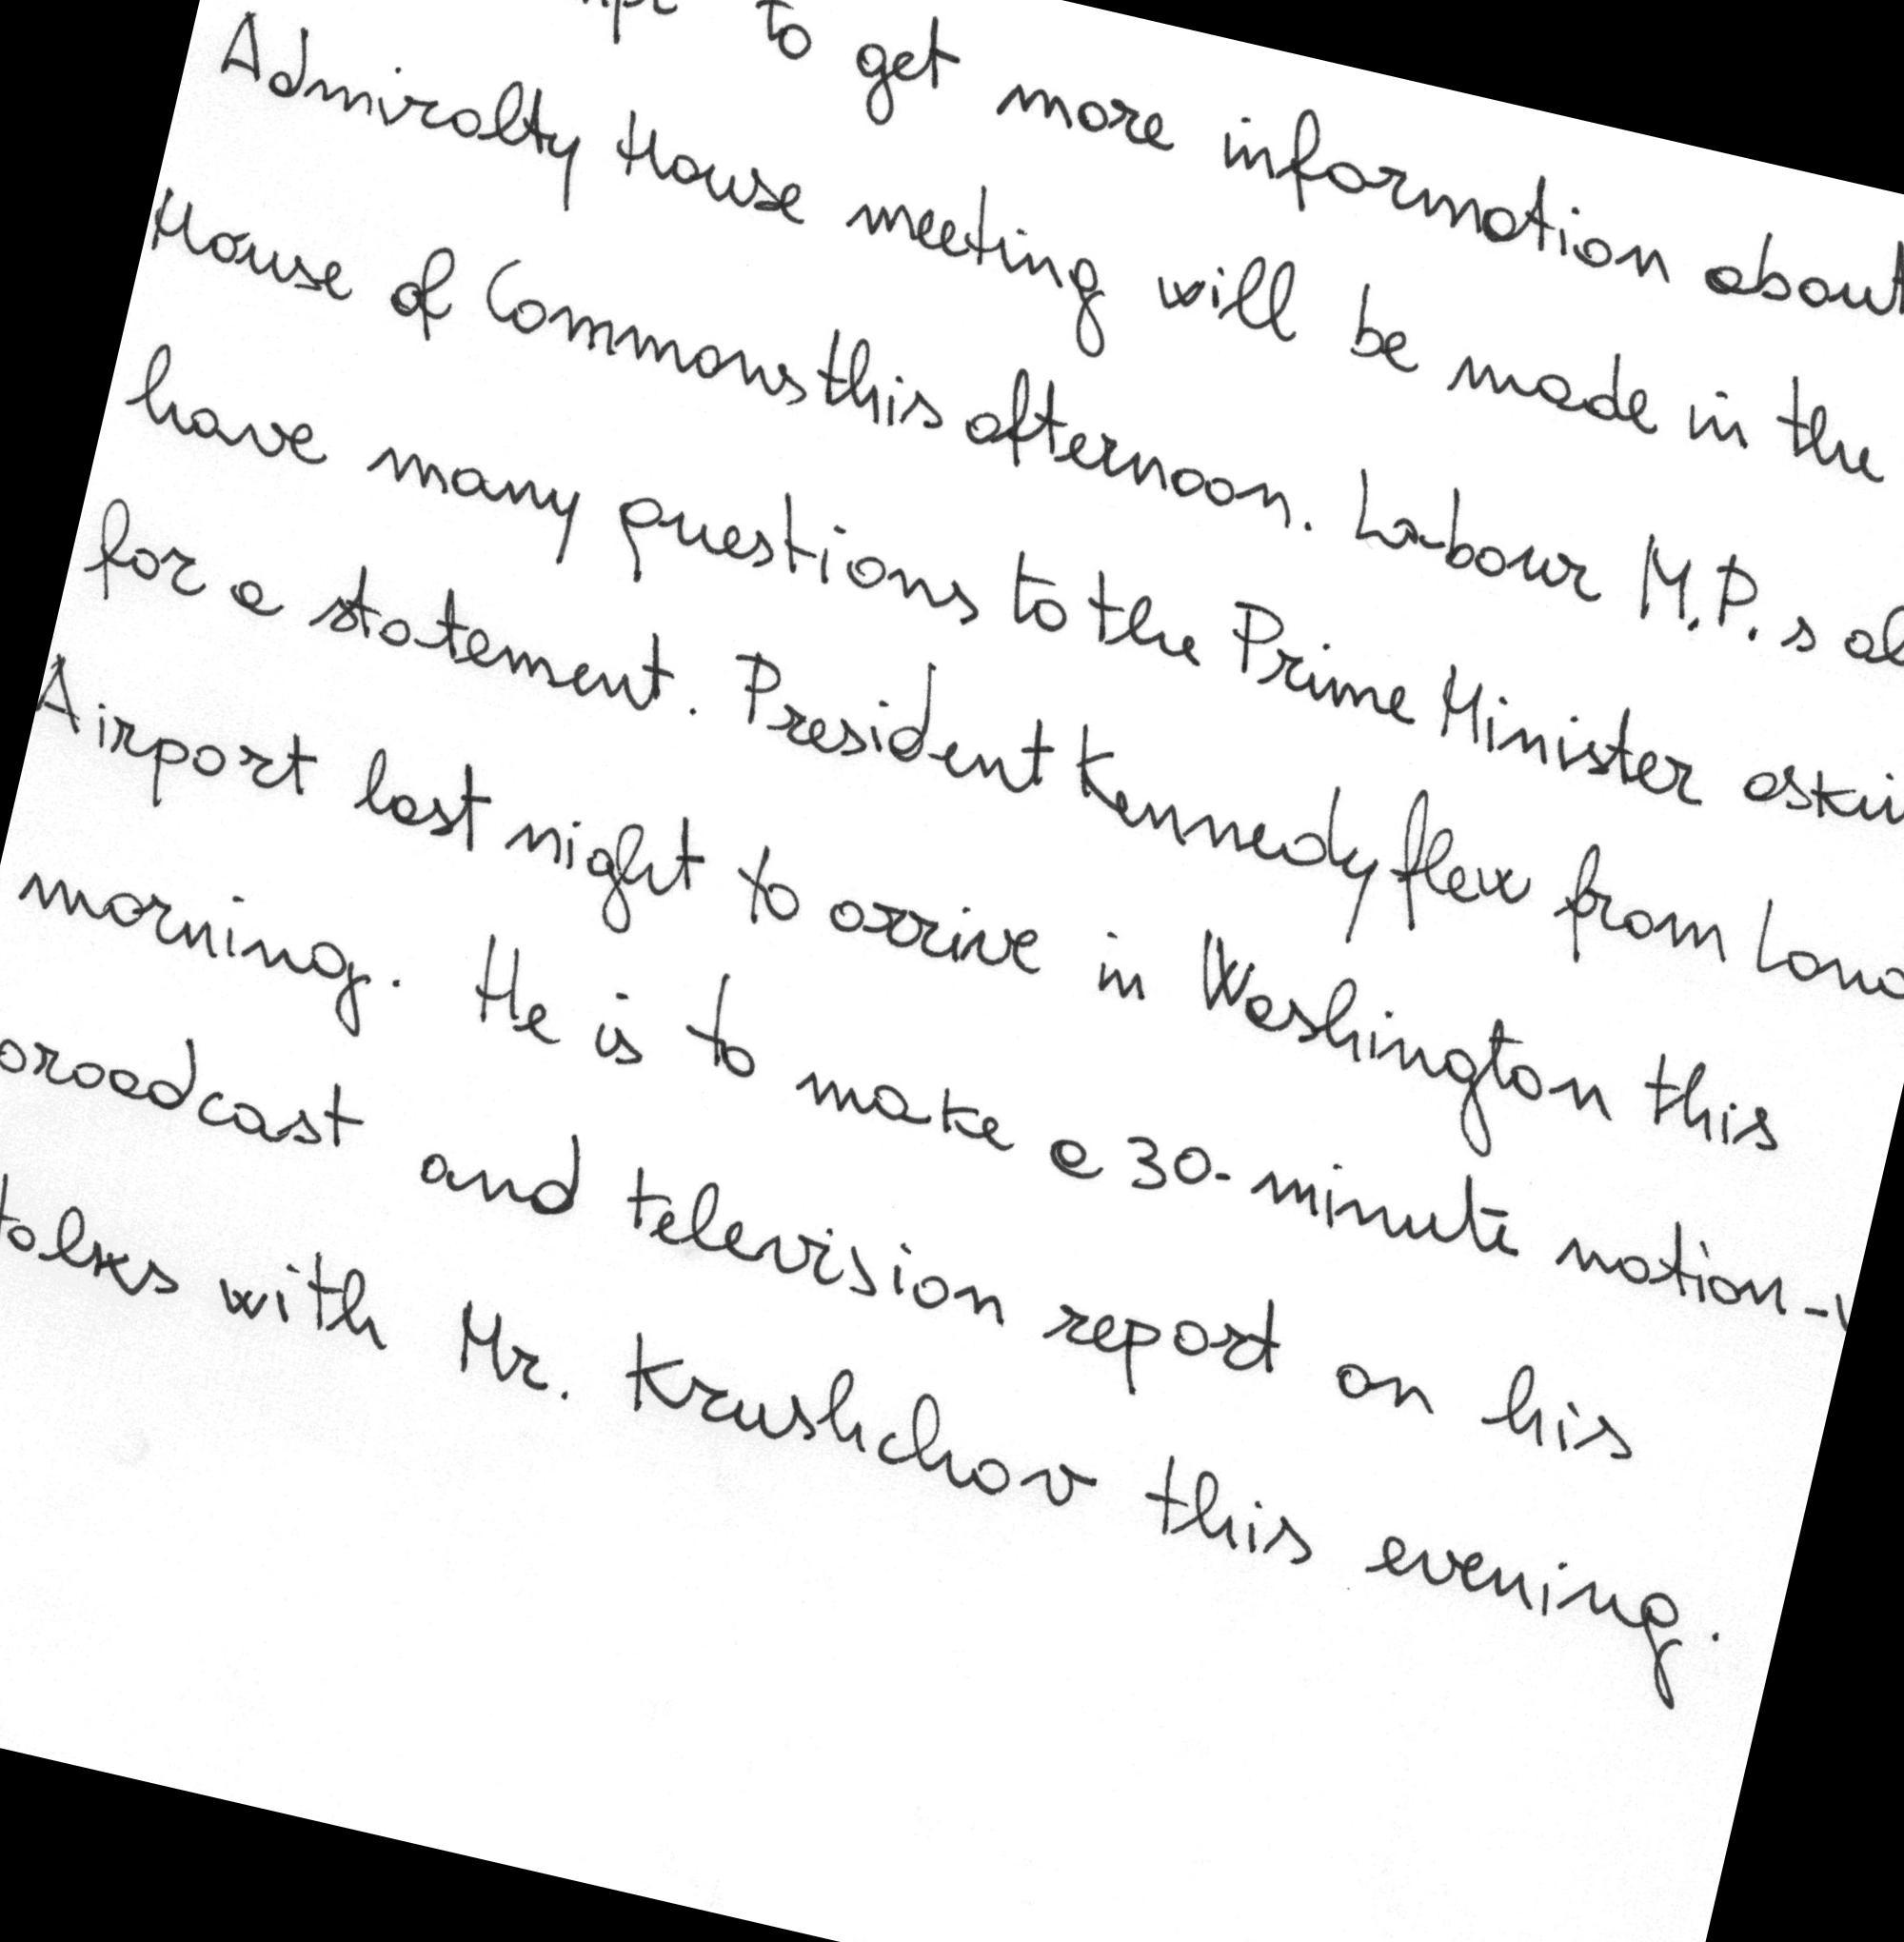 to get more information about
Admiralty House meeting will be made in the
House of Commons this afternoon. Labour M.P.s
have many questions to the Prime Minister
for a statement. President Kennedy flew from
Airport last night to arrive in Washington this
morning. He is to make a 30-minute nation-
broadcast and television report on his
talks with Mr. Krushchov this evening.